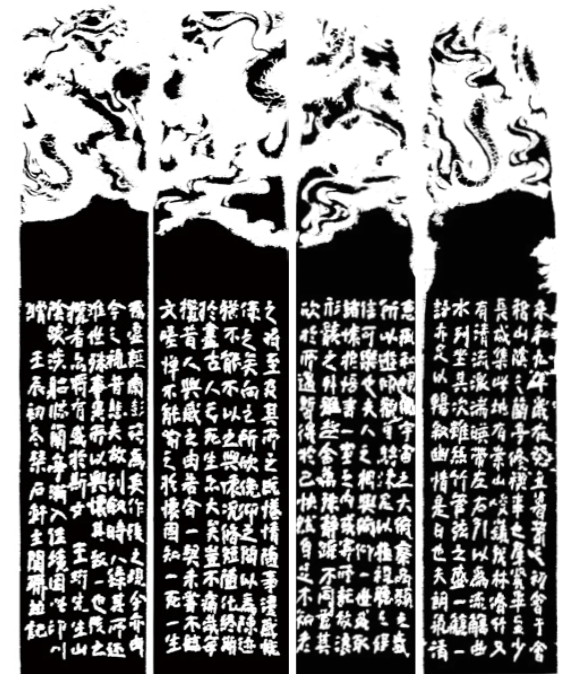 永和九年歲在癸丑暮春之初會于會
稽山陰之蘭亭修禊事也群賢畢至少
長咸集此地有崇山峻領茂林脩竹又
有清流激湍暎帶左右引以為流觴曲
水列坐其次雖絲竹管弦之盛一觴一
詠亦足以暢敘幽情是日也天朗氣清
惠風和暢仰觀宇宙之大俯察品類之盛
所以遊目騁懷足以極視聽之娛
信可樂也夫人之相與俯仰一世或取
諸懷抱悟言一室之內或寄所託放浪
形骸之外雖趣舍萬殊靜躁不同當其
欣於所遇暫得於己快然自足不知老
之將至及其所之既惓情隨事遷感慨
係之矣向之所欣俛仰之間以為陳迹
猶不能不以之興懷況脩短隨化終期
於盡古人云死生亦大矣豈不痛哉每
攬昔人興感之由若合一契未嘗不臨
文嗟悼不能喻之於懷固知一死一生
為虛誕齊彭殤為妄作後之視今亦由
今之視昔悲夫故列敘時人錄其所述
雖世殊事異所以興懷其致一也後之
攬者亦將有感於斯文 王 先生山
臨蘭亭 入佳境因
壬辰初冬 石軒主 記